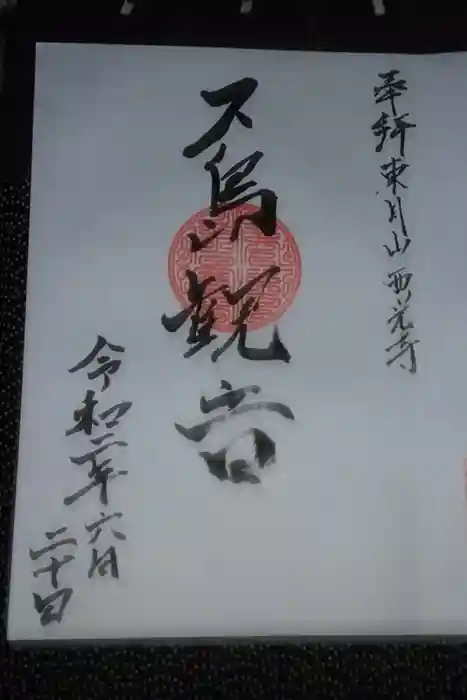 奉拝 東月山 西光寺
島観音
令和二年六月
二十日